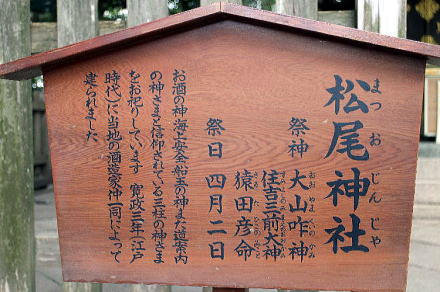 松尾神社
まつおじんじゃ
祭神 大山咋神
おおやまくいのかみ
住吉三前大神
猿田彦命
さるたひこのみこと
祭日 四月二日
お酒の神海上安全船玉の神また道案内
の神さまと信仰されている三柱の神さま
をお祀りしています 寛政三年(江戸
時代)に当地の酒造家仲間によって
建られました